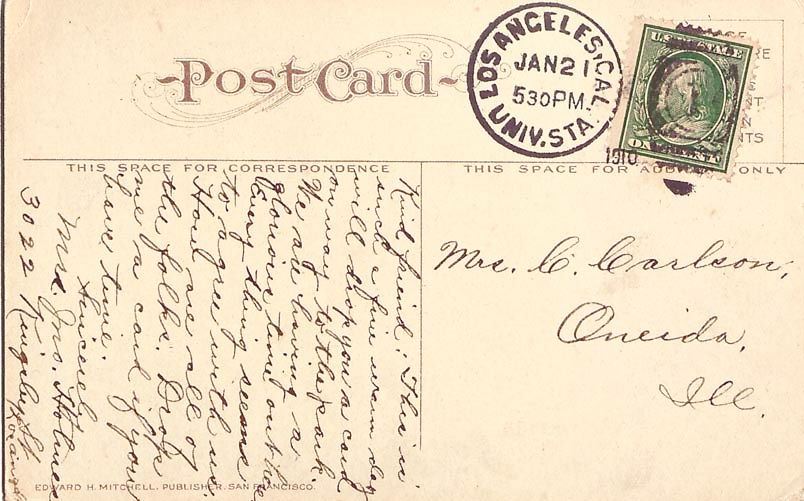 Post Card
LOS ANGELES, CAL.
JAN 21
530 PM.
1910
UNIV. STA.
THIS SPACE FOR CORRESPONDENCE
THIS SPACE FOR ONLY
Mrs. C. Carlson,
Oneida,
Ill.
Kind friend: This is
such a fine warm day
will drop you a card
on way to the park.
We are having a
glorious time out here
Every thing seems
to agree with us.
How are all of
the folks. Drop
me a card if you
have time.
Sincerely
Mrs. Jno. Holmes
3022 Kingsley St.
Los Angeles
EDWARD H. MITCHELL, PUBLISHER, SAN FRANCISCO.